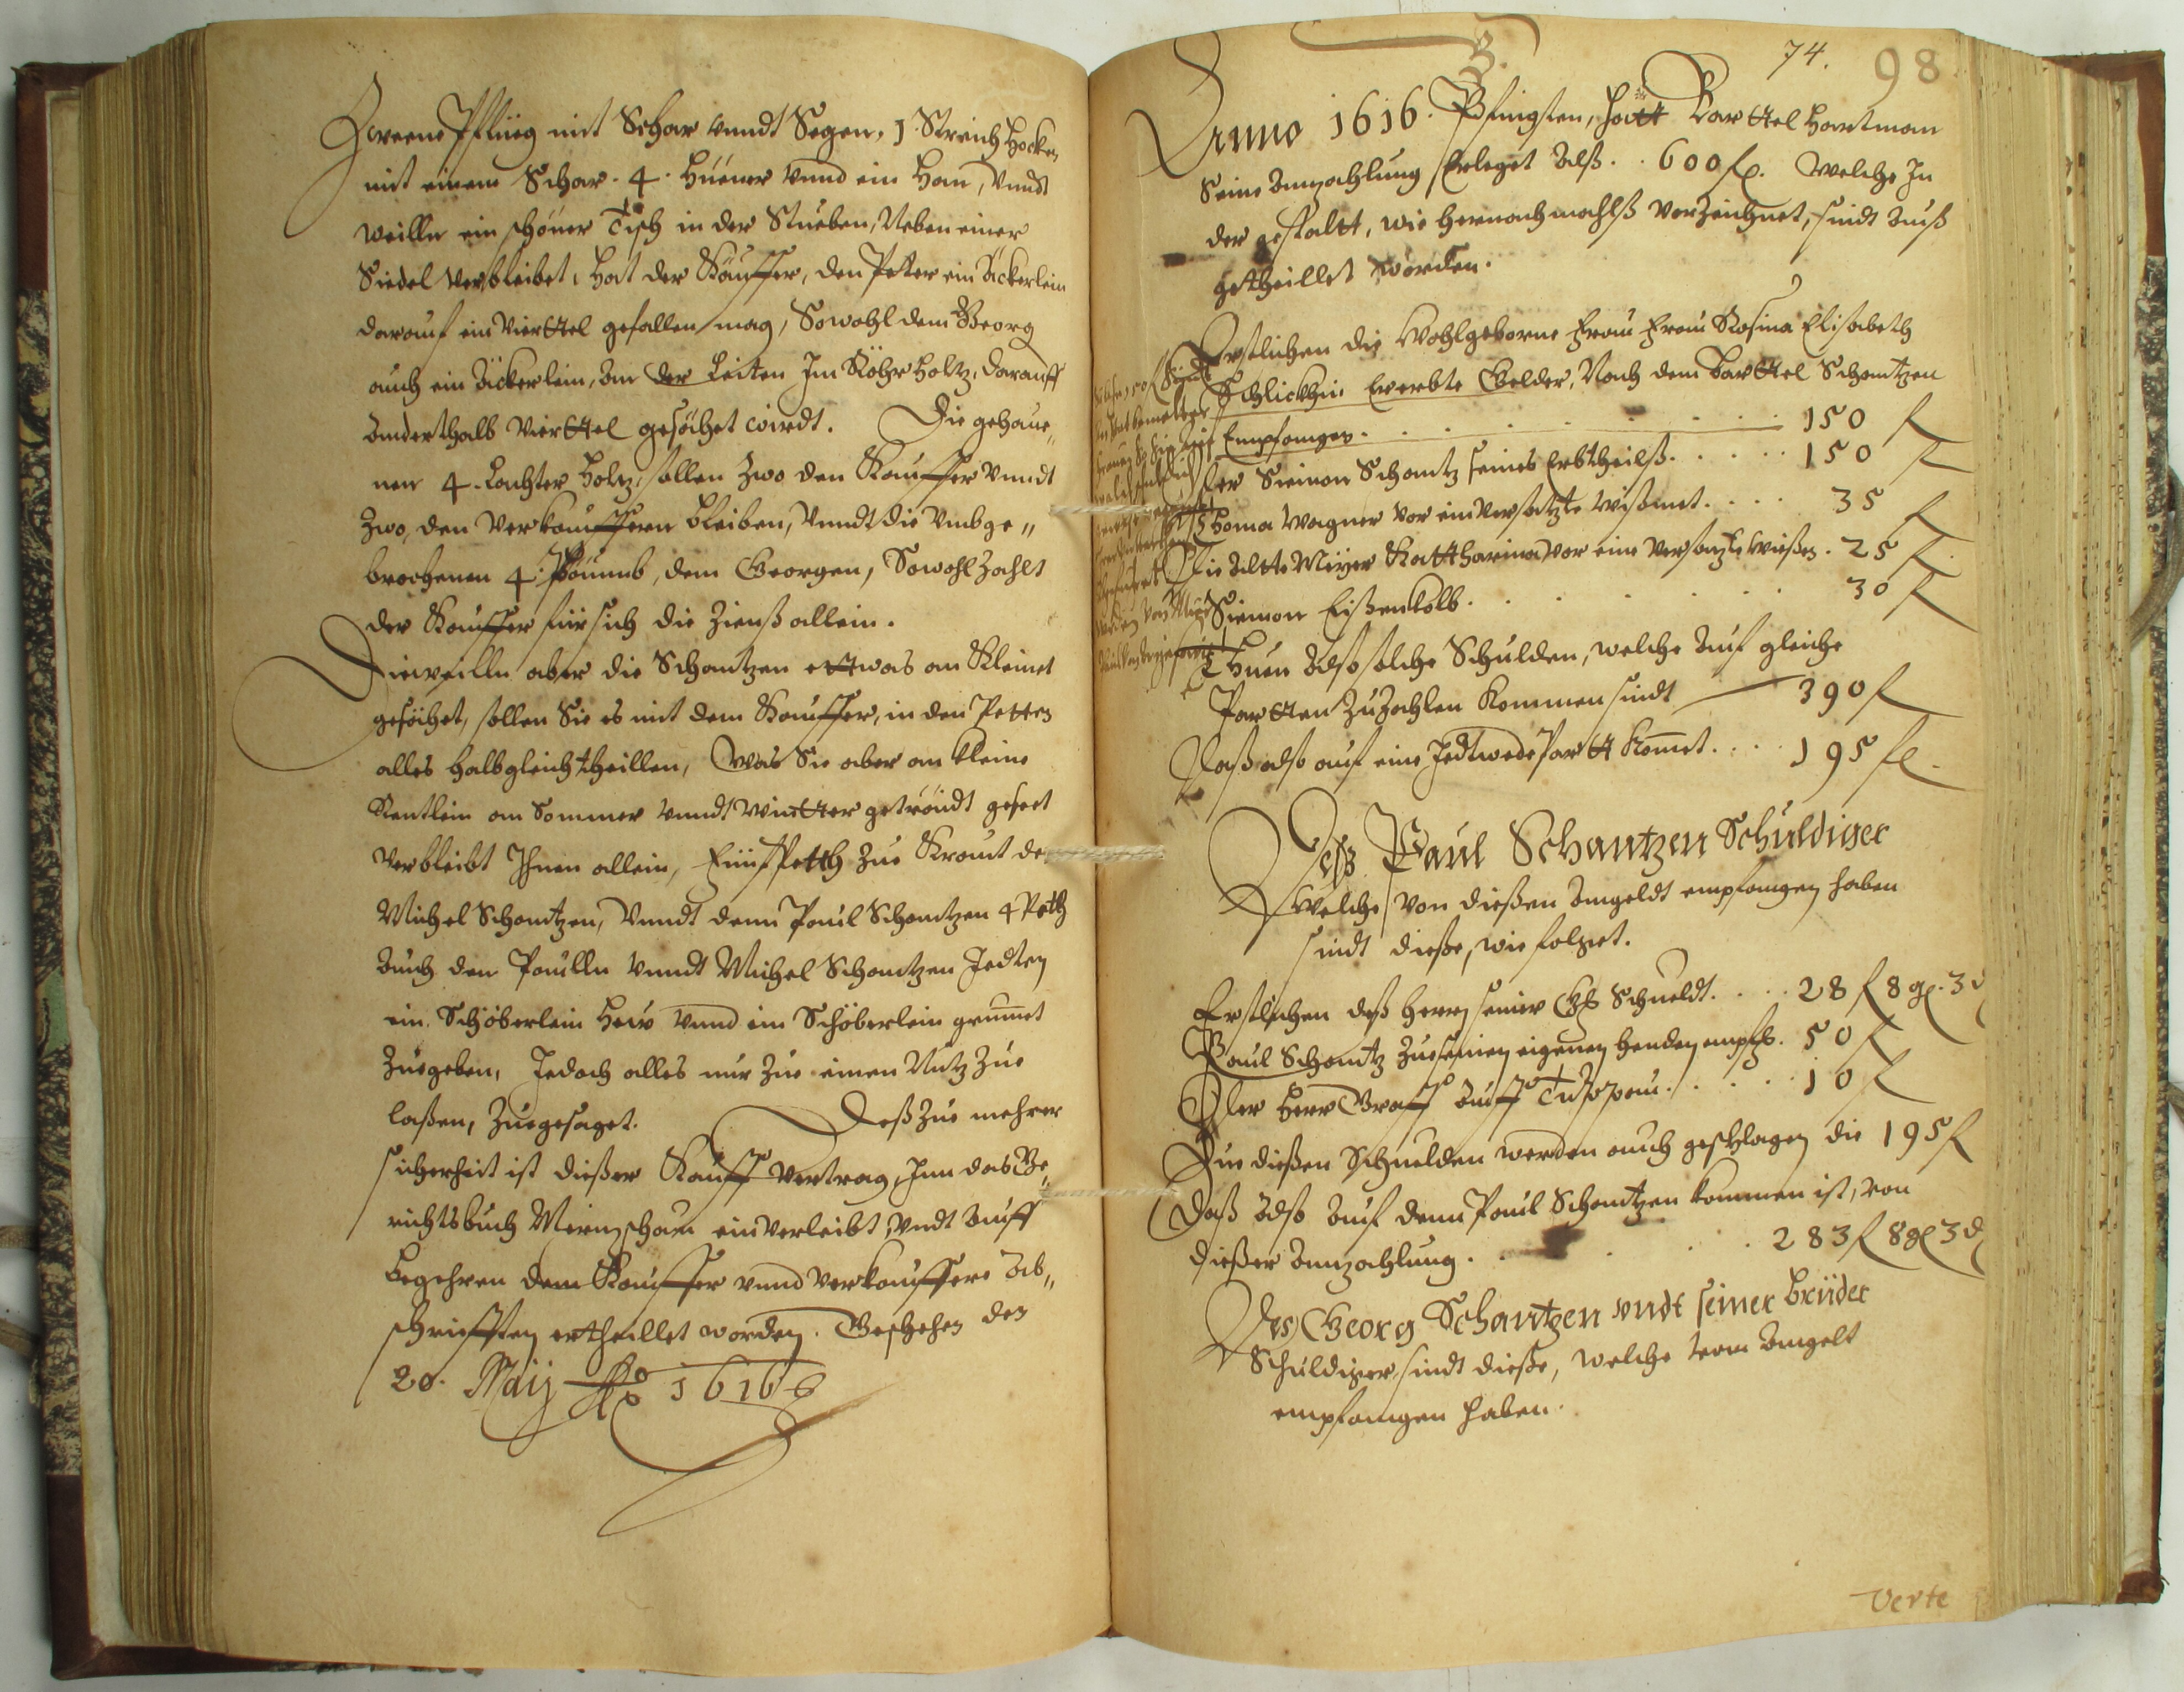 Zweene Pflüeg mit Schar vnndt Segen, 1. Streich Hocken
mit einem Schar. 4. Hüener vnnd ein Han, Vnndt
weilln ein schöner Tisch in der Stueben, Neben einer
Siedel verbleibet, Hat der Kauffer, den Peter ein Äckerlein
darauf ein Vierttel gefallen mag, Sowohl dem Georg
auch ein Äckerlein, An der Leiten Im Röhr Holtz, darauff
Anderthalb Vierttel gesähet wirdt. Die gehaue„
nen 4. Lachter Holtz, sollen Zwo den Kauffer vnndt
Zwo, den Verkauffern bleiben, Vnndt die Vmbge„
brochenen 4. Baumb, dem Georgen, Sowohl Zahlt
der Kauffer für sich die Zienß allein.
Dieweilln aber die Schantzen ettwas an Kleinet
gesähet, sollen Sie es mit dem Kauffer, in den Petten
alles halb gleich theillen, Was Sie aber an kleine
Rentlein am Sommer vnndt Wintter geträidt geseet
verbleibt Ihnen allein, Fünff Petth Zue Kraut de
Michel Schantzen, Vnndt denn Paul Schantzen 4 Peth
Auch den Paulln vnndt Michel Schantzen Jedten
ein Schöberlein Hew vnnd ein Schöberlein grummet
Zuegeben, Jedoch alles nur Zue einen Nutz Zue
laßen, Zuegesaget. Deß Zue mehrer
sicherheit ist dießer Kauff Vertrag, Inn das Ge„
richtsbuch einverleibt, vndt Auff
begehren dem Kauffer vnnd verkauffere Ab„
schriefften ertheillet worden. Geschehen den
20. Maij Ao 1616
74. 98
Anno 1616. Pfingsten, hatt Barttel Hartman
Seine Anzahlung Erleget Alß. 600 fl. Welche In
der gestaltt, wie hernach mahlß verzeichnet, sindt Auß
getheillet worden.
Erstlichen die Wohlgeborne Frau Frau Rosina Elisabeth
Schlickhin Ererbte Gelder, Nach dem Barttel Schantzen
Empfangen. 150 fl
Der Siemon Schantz seines Erbtheilß. 150 fl
Thoma Wagner vor ein versatzte wißmet. 35 fl
Die Altte Meyer Kattharina, vor eine versatzte wießen. 25 fl
Siemon Eißenkolb. 30 fl
Thuen Alßo solche Schulden, welche Auf gleiche
Partten Zu Zahlen kommen sindt 390 fl
Daß alßo auf eine Jedtwede Partt kommet. 195 fl.
Deß Paul Schantzen Schuldiger
Welche von dießen Angeldt empfangen haben
sindt dieße, wie folget.
Erstlichen deß Herrn seiner Schueldt. 28 fl 8 gl. 3 d
Paul Schantz Zue seinen eigenen henden empfg. 50 fl
Der Herr Graff Auff 10 fl
Zue dießen Schuelden werden auch geschlagen die 195 fl
Daß Alßo Auf denn Paul Schantzen kommen ist, von
dießer Anzahlung. 283 fl 8 gl 3 d
Des Georg Schantzen vndt seiner brüder
Schuldiger sindt dieße, welche vom Angelt
empfangen haben.
Verte